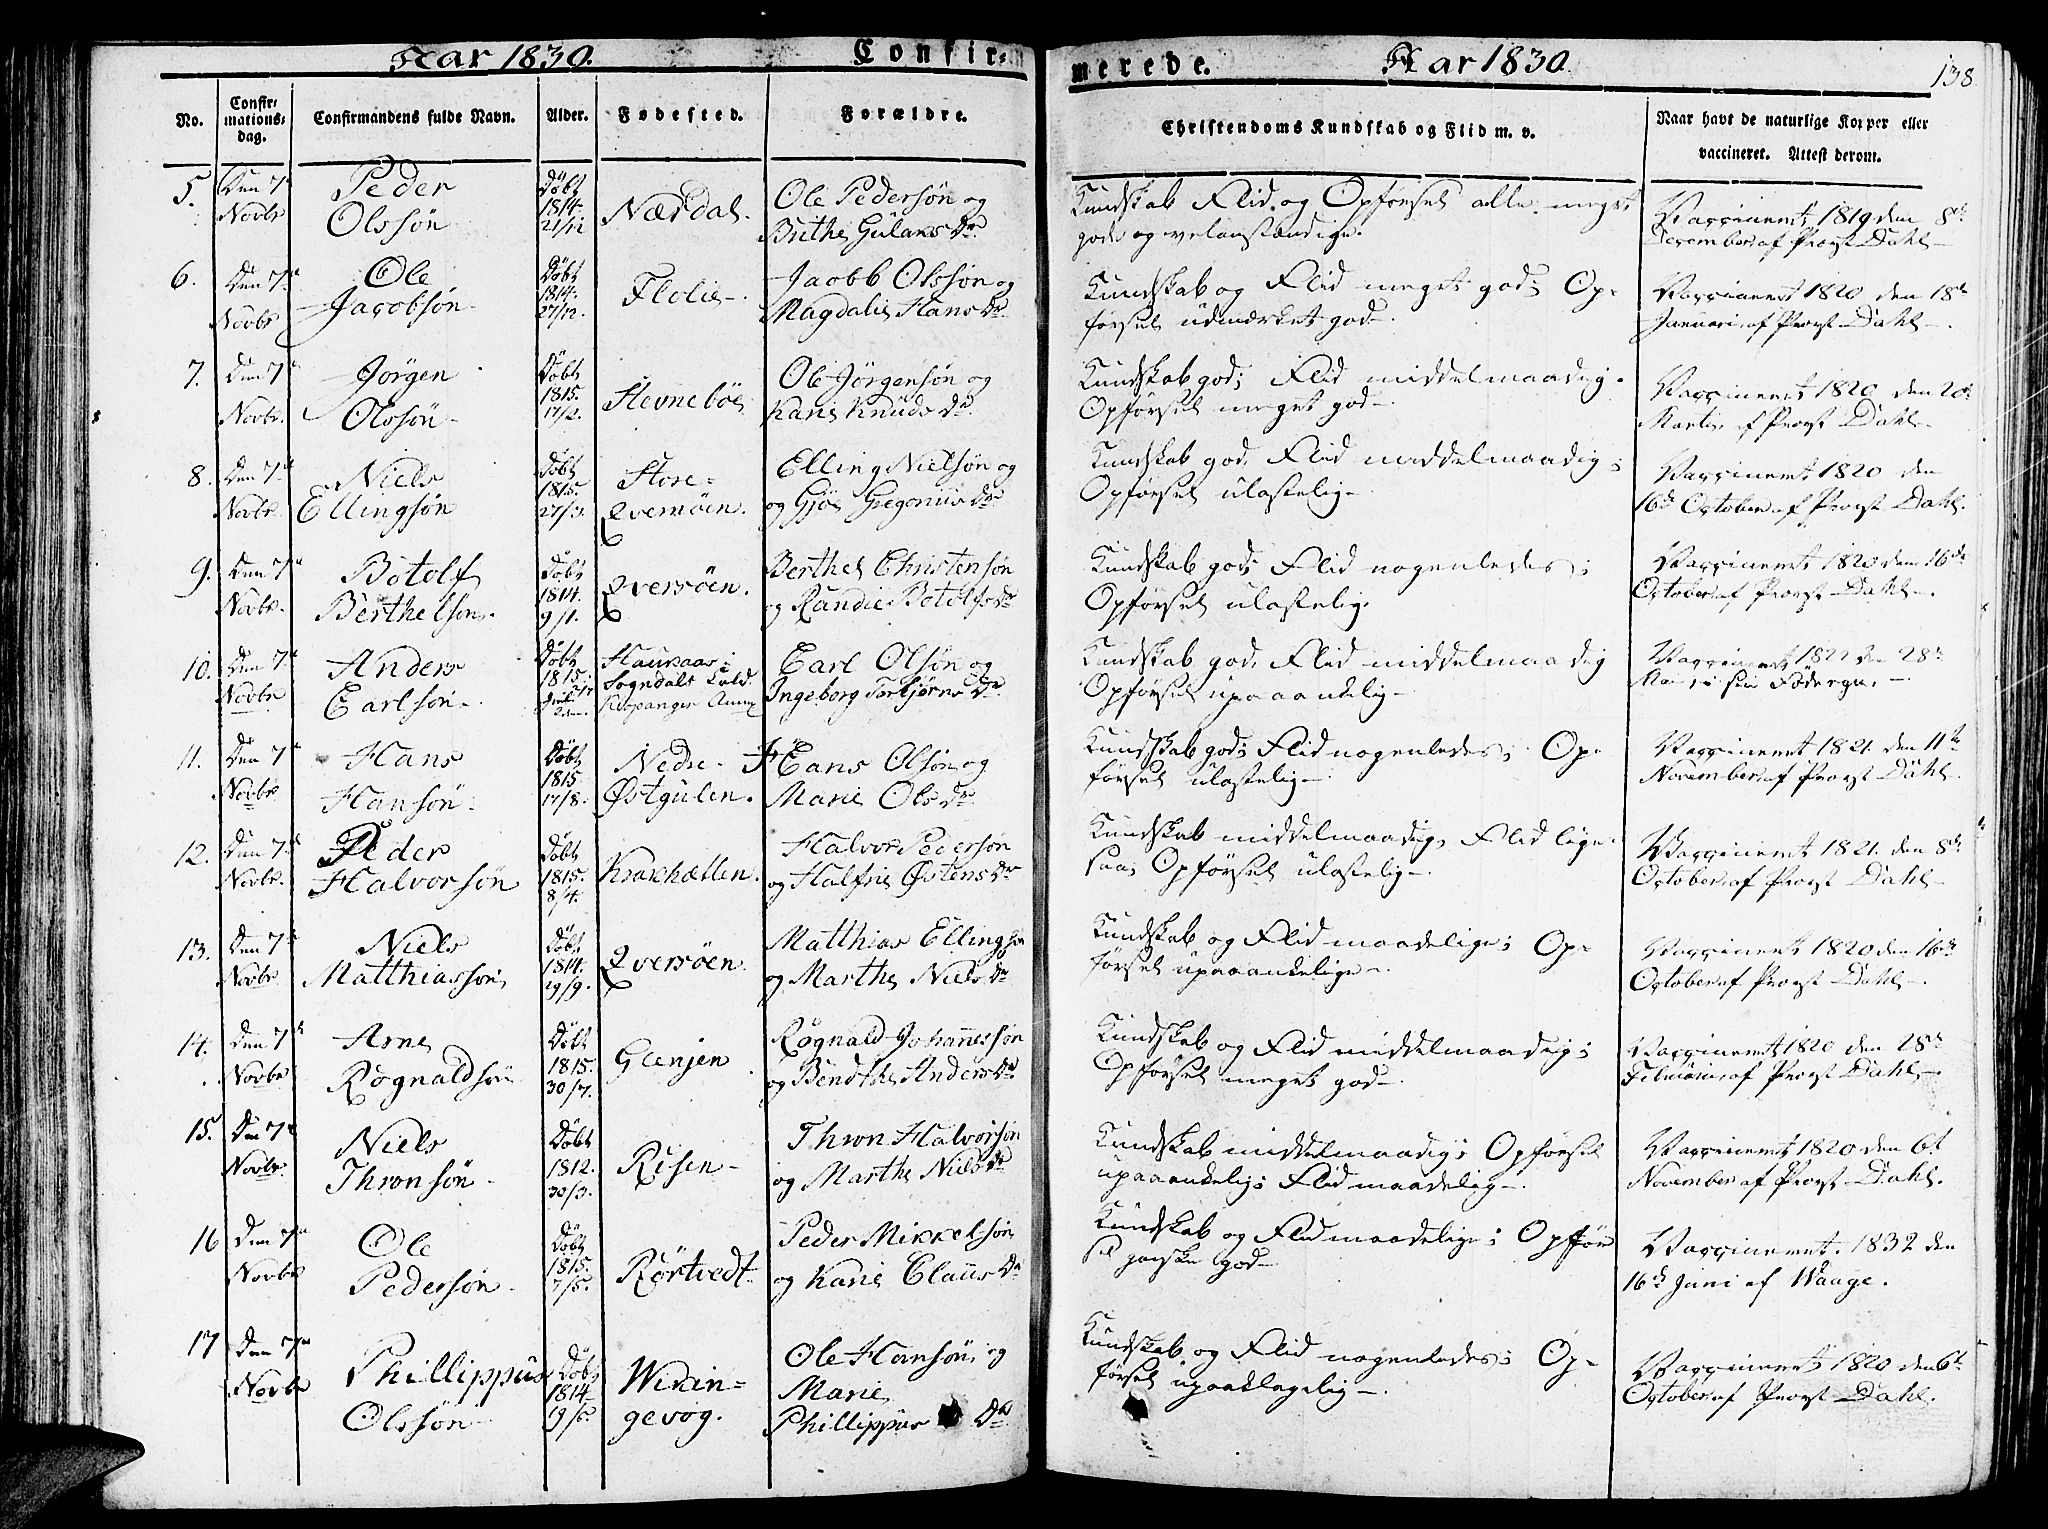 Aar 1830.
Confir=
merede.
Aar 1830.
138
No.
Confir=
mations=
dag.
Confirmandens fulde Navn.
Alder.
Fødested.
Forældre.
Christendoms Kundskab og Flid m. v.
Naar havt de naturlige Kopper eller
vaccineret. Attest derom.
5.
Den 7de
Novbr
Peder
Olssön
Döbt
1814.
21/12
Nærdal.
Ole Pedersön og
Brithe Gulaks Dr.
Kundskab Flid og Opförsel alle meget
gode og velanstændige.
Vaccineret 1819 den 8de
December af Provst Dahl
6.
Den 7de
Novbr
Ole
Jacobsön
Döbt
1814.
27/12.
Flolie
Jacob Olssön og
Magdalie Hans Dr.
Kundskab og Flid meget god; Op-
försel udmærket god
Vaccineret 1820 den 18de
Januari, af Provst Dahl
7.
Den 7de
Novbr.
Jörgen
Olssön
Döbt
1815.
17/2.
Hevneböe
Ole Jörgensön og
Karie Knuds Dr.
Kundskab god; Flid middelmaadig.
Opförsel meget god
Vaccineret 1820 den 20de
Martii, af Provst Dahl
8.
Den 7de
Novbr.
Niels
Ellingsön
Döbt
1815.
27/3.
Store-
Qversöen.
Elling Nielsön og
og Gjöe Gregorius Dr
Kundskab god, Flid middelmaadig;
Opförsel ulastelig
Vaccineret 1820 den
16de October af Provst Dahl.
9.
Den 7de
Novbr.
Botolf
Berthelsön.
Döbt
1814.
9/1.
Qversöen.
Berthel Christensön
og Randie Botolfs Dr
Kundskab god; Flid nogenledes;
Opförsel ulastelig.
Vaccineret 1820 den 16de
October af Provst Dahl
10.
Den 7de
Novbr
Anders
Earlsön
Döbt
1815.
Haukaas i
Sogndals Kald
Kopanger Annex
Earl Olsön og
Ingeborg Torbjörns Dr
Kundskab god, Flid middelmaadig
Opförsel upaaandelig
Vaccineret 1822 den 28de
Mai, i sin
11.
Den 7de
Novbr
Hans
Hansön
Döbt
1815
17/8.
Nedre
Østgulen.
Hans Olsön og
Marie Ols Dr.
Kundskab god; Flid nogenledes; Op-
försel ulastelig
Vaccineret 1821. den 11te
November af Provst Dahl.
12.
Den 7de
Novbr.
Peder
Halvorsön
Döbt
1815.
8/4.
Krakhællen.
Halvor Pedersön
og Halfrie Östens Dr
Kundskab middelmaadig, Flid lige-
saa; Opförsel ulastelig
Vaccineret 1821. den 8de
October af Provst Dahl
13.
Den 7de
Novbr
Niels
Matthiassön
Döbt
1814.
19/9.
Qversöen.
Matthias Ellingsön
og Marthe Niels Dr
Kundskab og Flid maadelige; Op-
försel upaaankelige
Vaccineret 1820 den 16de
October af Provst Dahl
14.
Den 7de
Novbr
Arne
Rognaldsön
Döbt
1815.
30/7.
Glenjen
Rognald Johannessön
og Bendthe Anders Dr
Kundskab og Flid middelmaadig;
Opförsel meget god
Vaccineret 1820 den 28de
Februari, af Provst Dahl
15.
Den 7de
Novbr.
Niels
Thronsön
Döbt
1812.
30/3.
Risen
Thron Halvorsön
og Marthe Niels Dr
Kundskab middelmaadig; Opförsel
upaaankelig; Flid maadelig
Vaccineret 1820 den 6te
November af Provst Dahl.
16
Den 7de
Novbr
Ole
Pedersön
Döbt
1815.
7/5.
Rörtvedt
Peder Mikkelsön
og Karie Claus Dr
Kundskab og Flid maadelige; Opför
sel ganske god
Vaccineret 1832 den
16de Juni af Waage.
17
Den 7de
Novbr
Phillippus
Olssön
Döbt
1814
19/5.
Wikin=
gevog.
Ole Hansön, og
Marie
Phillippus Dr
Kundskab og Flid nogenledes; Op-
försel upaaklagelig
Vaccineret 1820 den 6te
October af Provst Dahl.